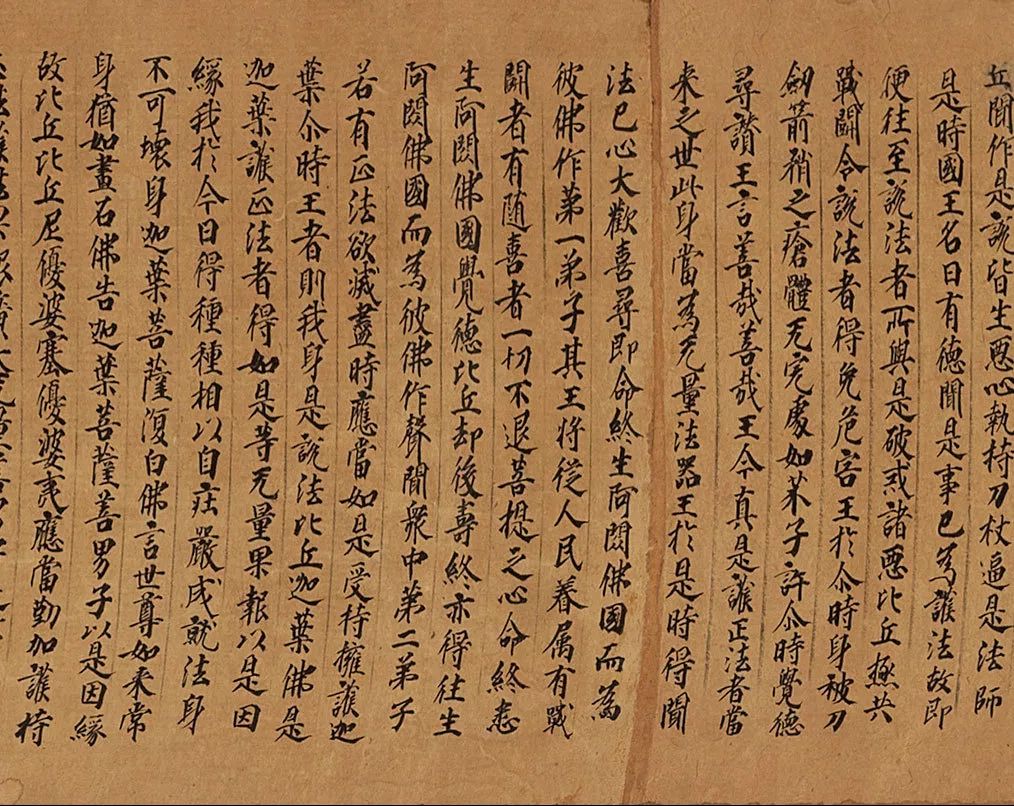 丘聞作是說皆生惡心執持刀杖逼是法師
是時國王名曰有德聞是事已為護法故即
便往至說法者所與是破戒諸惡比丘極共
戰鬪令說法者得免危害王於尒時身被刀
劍箭矟之瘡體无完處如芥子許尒時覺德
尋讚王言善哉善哉王今真是護正法者當
来之世此身當為无量法器王於是時得聞
法已心大歡喜尋即命終生阿閦佛國而為
彼佛作第一弟子其王將從人民眷属有戰
鬪者有随喜者一切不退菩提之心命終悉
生阿閦佛國覺德比丘却後壽終亦得往生
阿閦佛國而為彼佛作聲聞衆中第二弟子
若有正法欲滅盡時應當如是受持擁護迦
葉尒時王者則我身是說法比丘迦葉佛是
迦葉護正法者得如是等无量果報以是因
緣我於今日得種種相以自莊嚴成就法身
不可壞身迦葉菩薩復白佛言世尊如来常
身猶如畫石佛告迦葉菩薩善男子以是因緣
故比丘比丘尼優婆塞優婆夷應當勤加護持